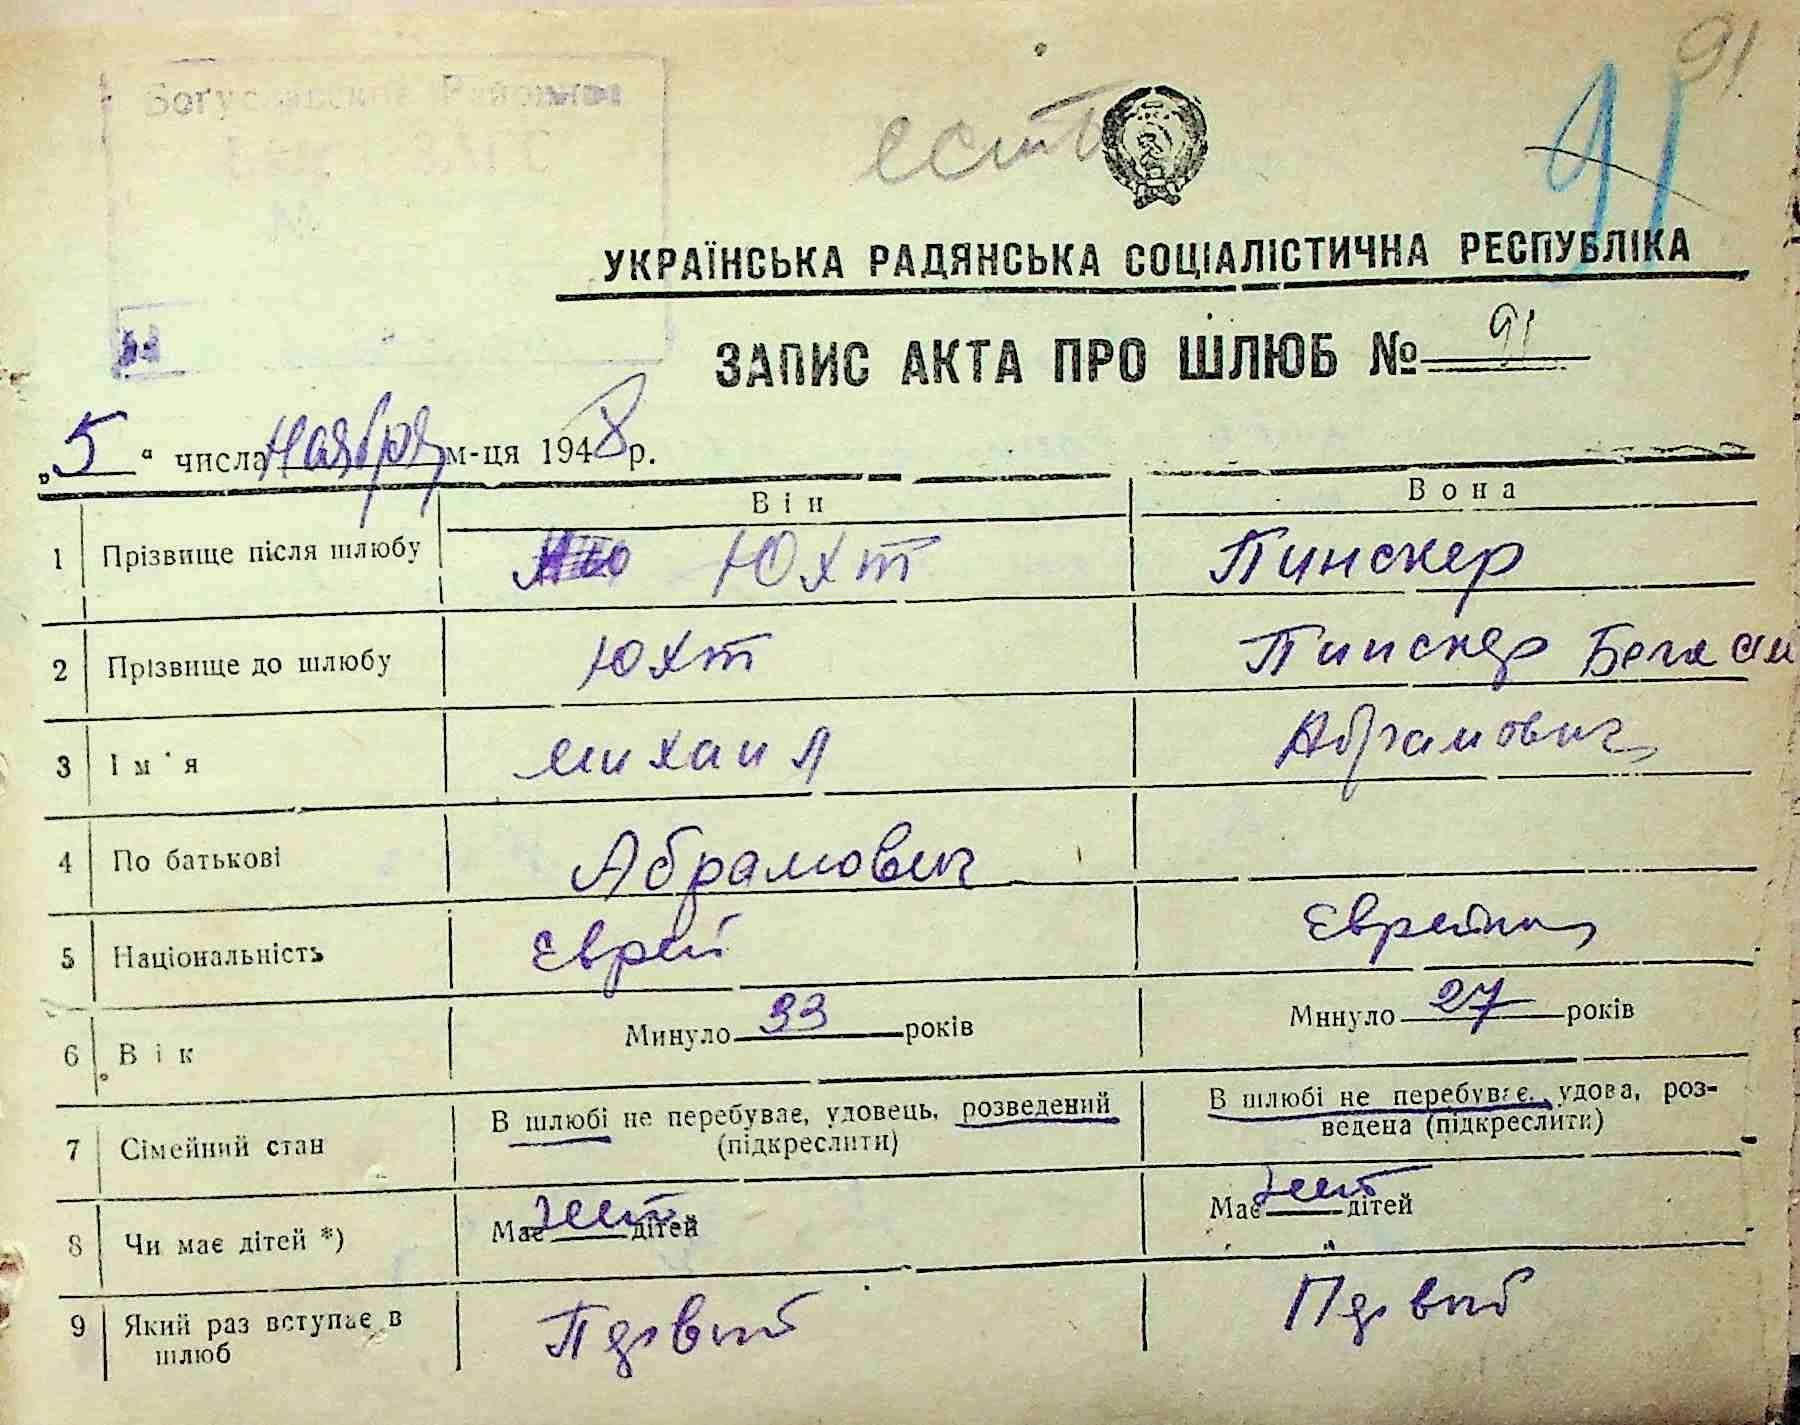 91
91
есть
УКРАЇНСЬКА РАДЯНСЬКА СОЦІАЛІСТИЧНА РЕСПУБЛІКА
ЗАПИС АКТА ПРО ШЛЮБ № 91
„5“ числа Ноября м-ця 1948 р.
Він Вона
1 Прізвище після шлюбу Юхт Пинскер
2 Прізвище до шлюбу Юхт Пинскер
3 Ім'я Михаил Абрамович
4 По батькові Абрамович
5 Національність Еврей Еврейка
6 Вік Минуло 33 років Минуло 27 років
7 Сімейний стан В шлюбі не перебуває, удовець, розведений (підкреслити) В шлюбі не перебуває, удова, роз-
ведена (підкреслити)
8 Чи має дітей *) Має нет дітей Має нет дітей
9 Який раз вступає в шлюб Первый Первый